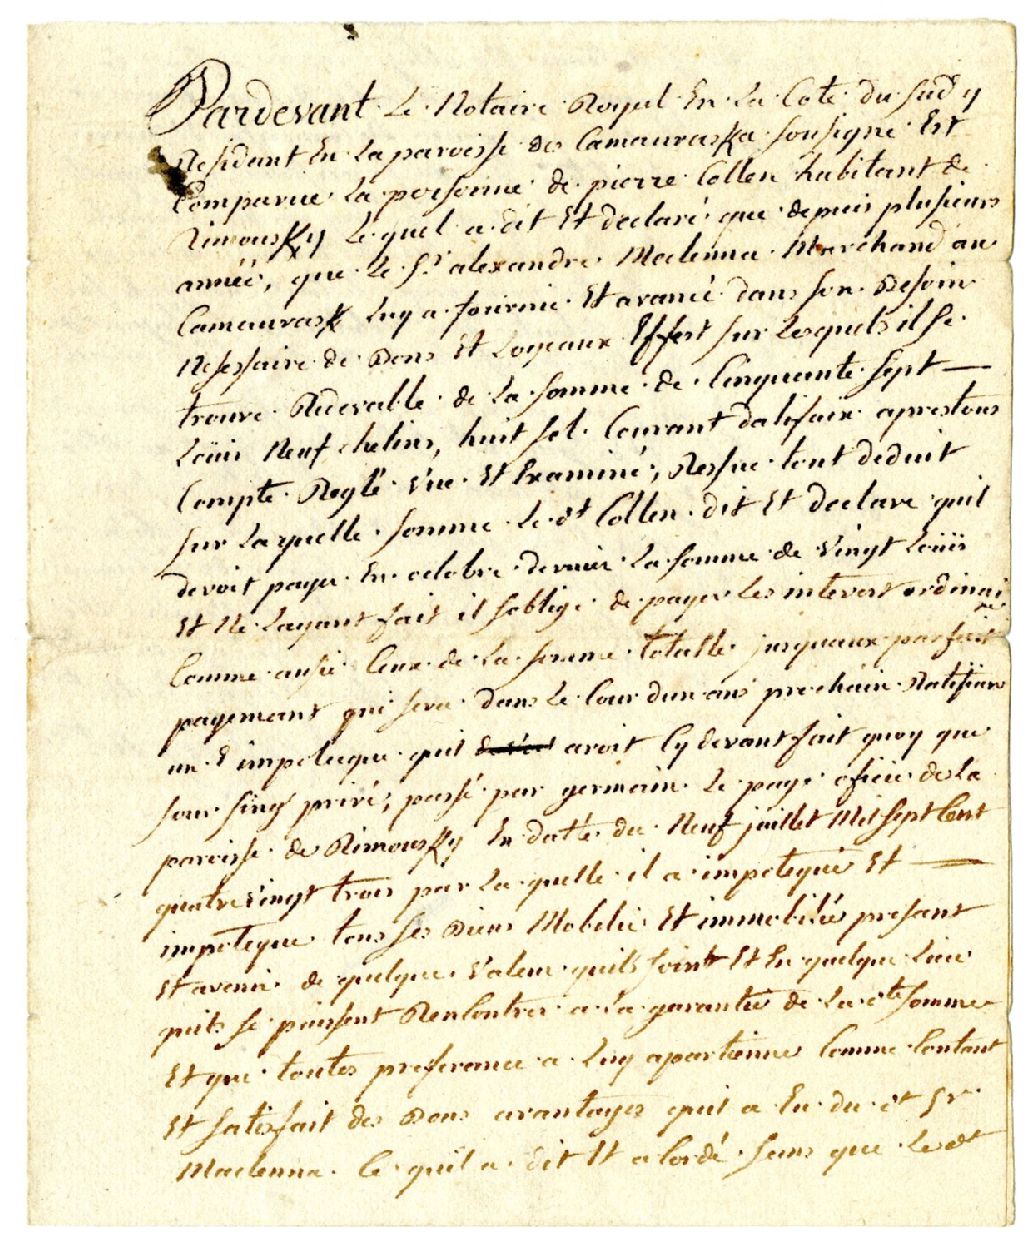 Pardevant Le Notaire Royal En La Cote du Sud y
Residant En La paroisse de Camouraska sousigné Est
Comparue La personne de pierre Collen habitant de
Rimousky Lequel a dit Et declaré que depuis plusieurs
année, que le Sr alexandre Maclenna Marchand au
Camourask Luy a fournie Et avancé dans son Besoin
Nesessaire de Bons Et Loyeaux Effest sur Lesquels il se
trouve Redevalle de La somme de Cinquante sept —
Loüis Neuf chelins, huit sol Courant dalifaix aprestous
Compte Reglé vue Et Examiné; Ressue tout deduit
sur Laquelle somme Le dt Collen dit Et declare quil
devoit payer En octobre dernier La somme de vingt Loüis
Et Ne Layant fait il soblige de payer Les interest ordinai
re
Comme ausie Ceux de La somme totalle jusquaux parfait
payemant qui sera dans Le Cour dun ans prochain Ratifians
un impoteque quil avoit Cy devant fait quoy que
sous sing privé, passé par germain Le page oficie de La
paroisse de Rimousky En datte du Neuf juillet Mil sept Cent
quatrevingt trois par La quelle il a impotequé Et —
impoteque tous ses Biens Mobilié Et immobiliés presant
Et avenir de quelque valeur quils soint Et En quelque Lieu
quils se puissent Rencontrer a La garantie de La dte somme
Et que toutes preferance a Luy apartienne Comme Contant
Et satisfait des Bons avantages quil a Eu du dt Sr
Maclenna Ce quil a dit Et acordé sans que Le dt